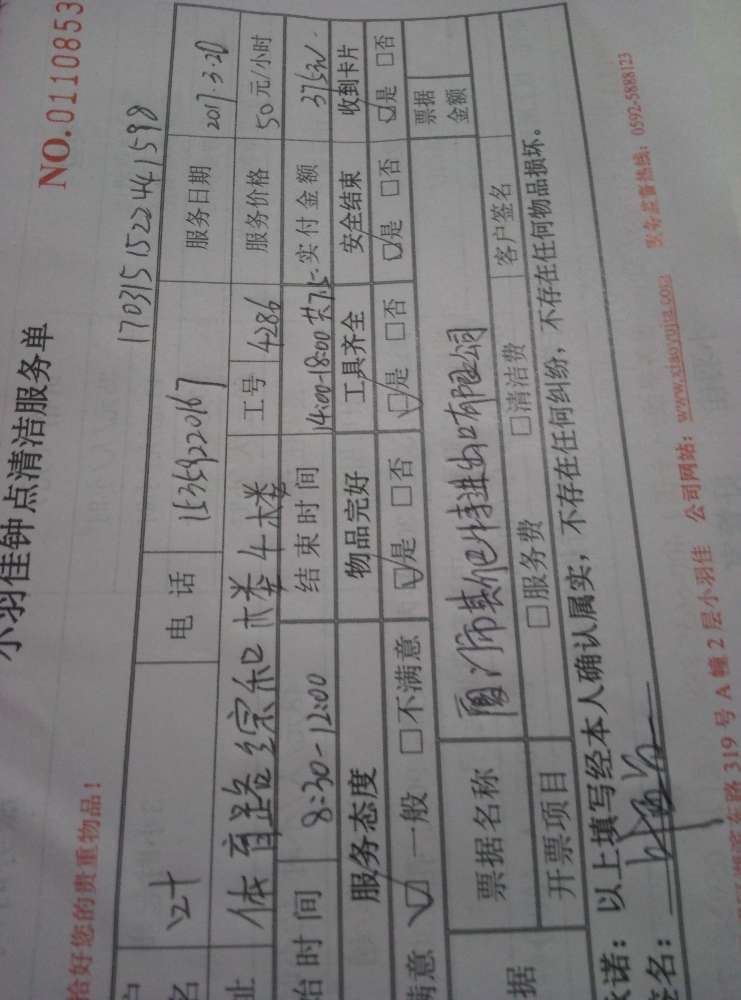 小羽佳钟点清洁服务单
NO.0110853
恰好您的贵重物品！
17031515224441598
电话 15359220167 服务日期 2017.3.20
体育路综和楼4楼 工号 4286 服务价格 50元/小时
始时间 8:30-12:00 结束时间 14:00-18:00共7.5 实付金额 375元
服务态度 物品完好 工具齐全 安全结束 收到卡片
满意 ☑ 一般 □不满意 ☑是 □否 ☑是 □否 ☑是 □否 ☑是 □否
据 票据名称 厦门市其他特进出口有限公司 票据金额
开票项目 □服务费 □清洁费 客户签名
承诺：以上填写经本人确认属实，不存在任何纠纷，不存在任何物品损坏。
签名：
东路319号A幢2层小羽佳 公司网站：www.xiaoyujia.com 服务监督热线：0592-5888123